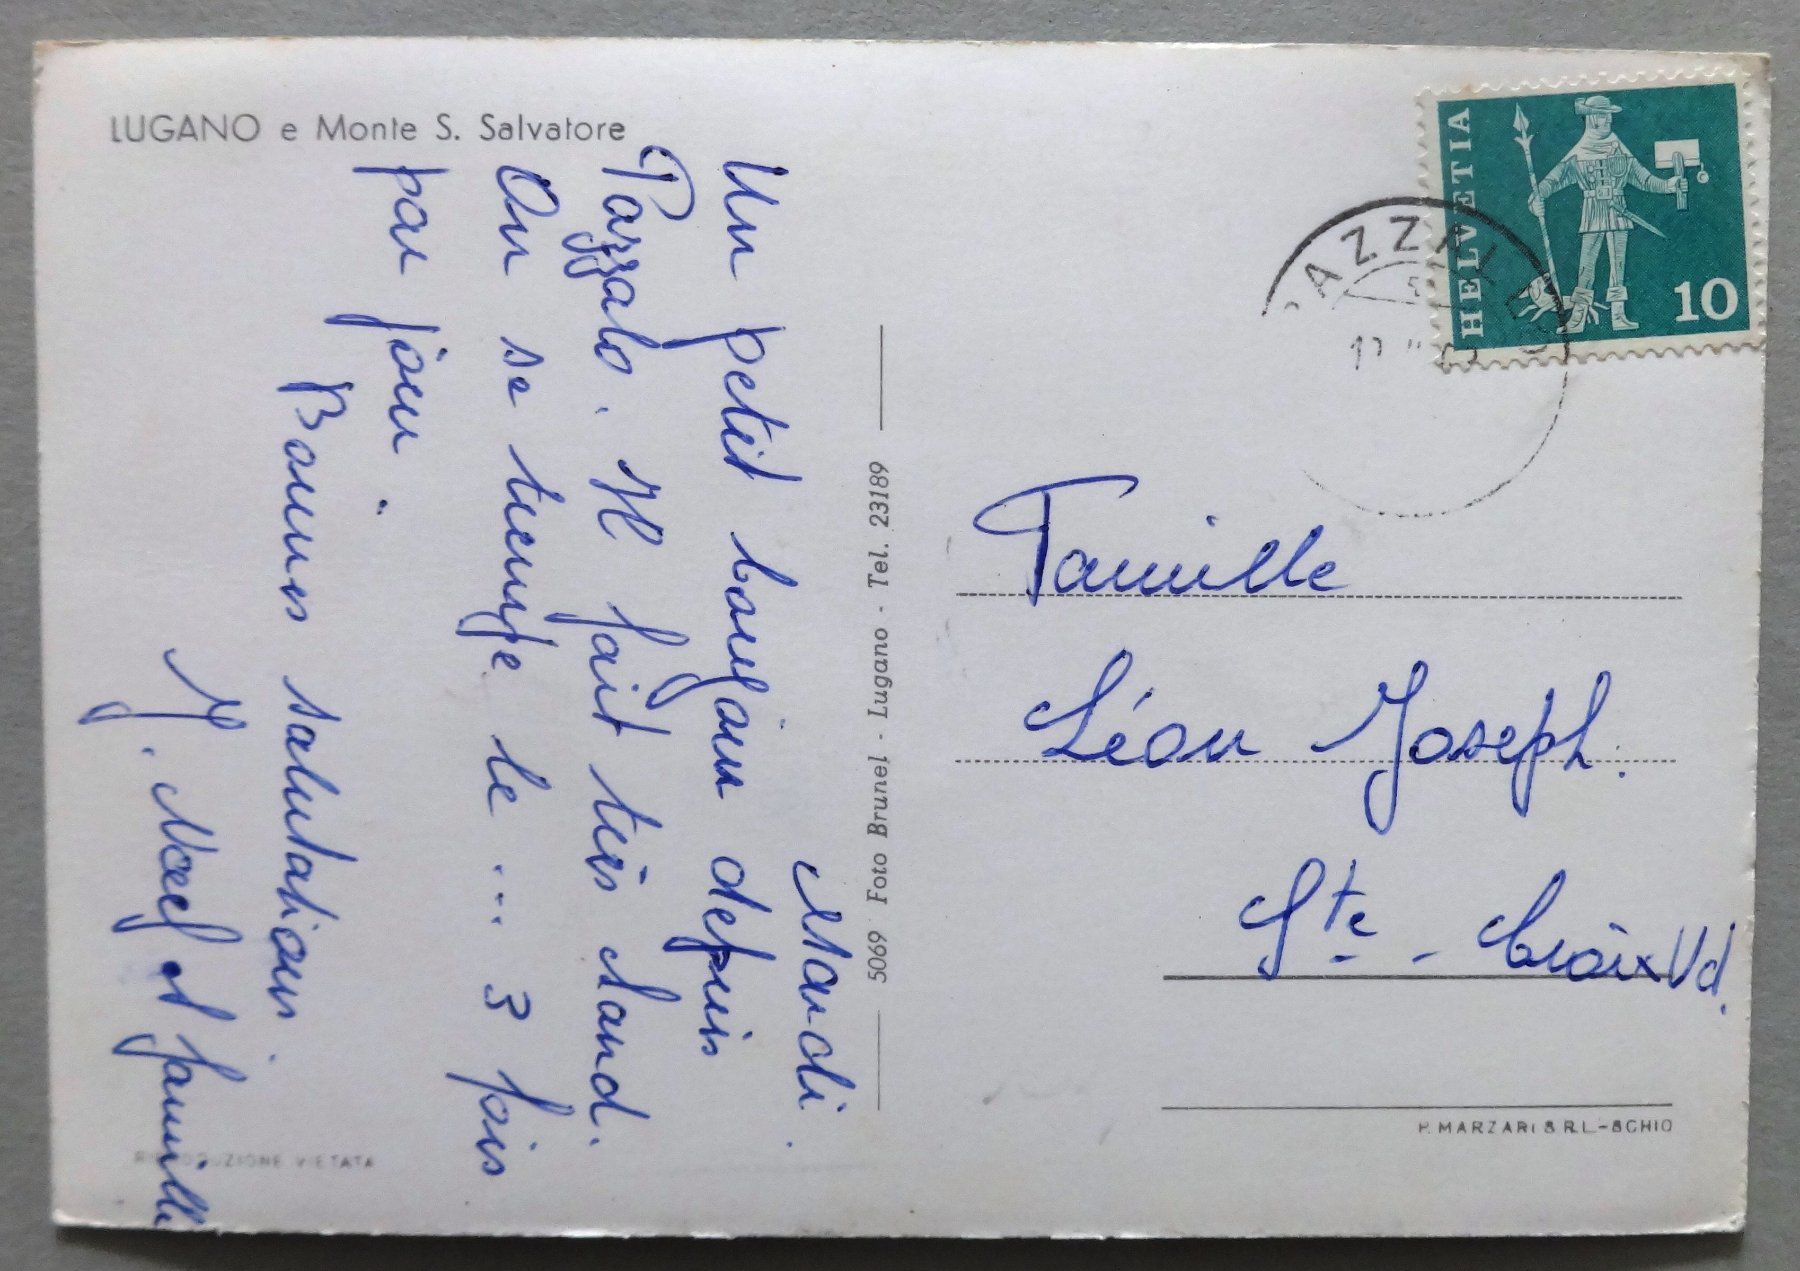 LUGANO e Monte S. Salvatore
Mardi.
Un petit bonjour depuis
Pazzalo. Il fait très chaud.
On se trempe le ... 3 fois
par jour.
Bonnes salutations.
et famille
5069 Foto Brunel - Lugano - Tel. 23189
HELVETIA
10
Famille
Léon Joseph.
Ste - Croix Vd.
P. MARZARI S.R.L.-SCHIO
RIPRODUZIONE VIETATA